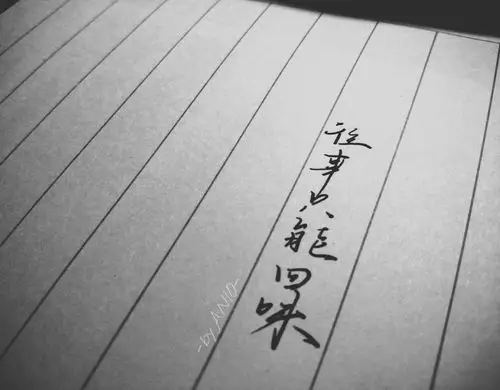 往事只能回味
-by ANIQ-